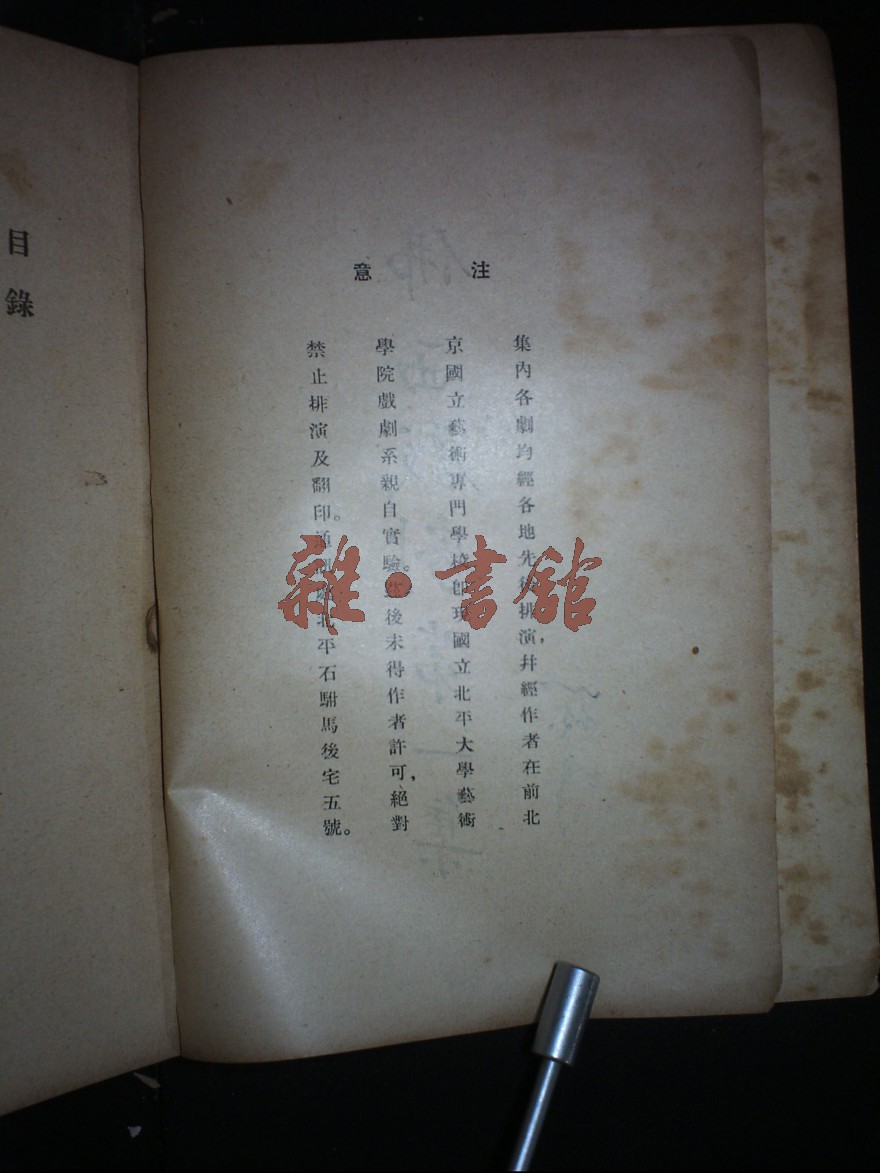 注意
集內各劇均經各地先後排演,幷經作者在前北
京國立藝術專門學校卽現國立北平大學藝術
學院戲劇系親自實驗。後未得作者許可,絕對
禁止排演及翻印。通北平石駙馬後宅五號。
目錄
雜·書館